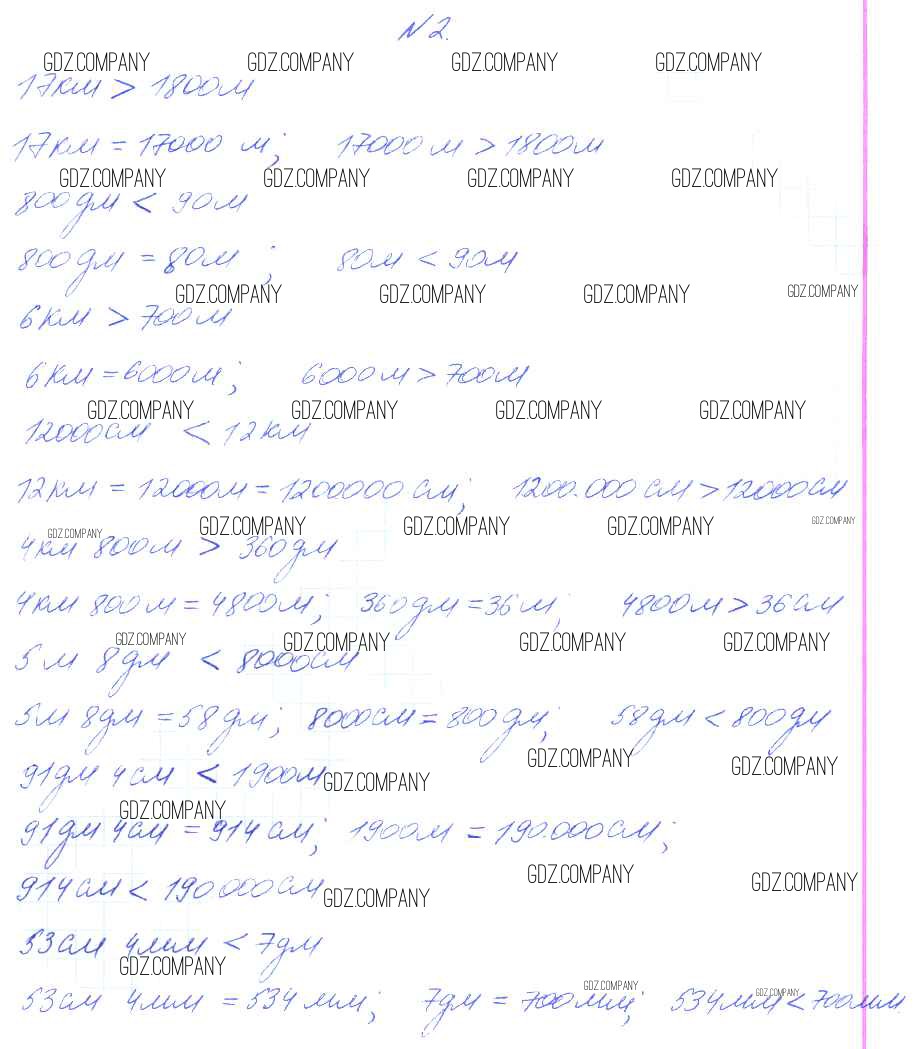 N2.
GDZ.COMPANY GDZ.COMPANY GDZ.COMPANY GDZ.COMPANY
17км > 1800м
17км = 17000 м; 17000м > 1800м
GDZ.COMPANY GDZ.COMPANY GDZ.COMPANY GDZ.COMPANY
800дм < 90м
800дм = 80м; 80м < 90м
GDZ.COMPANY GDZ.COMPANY GDZ.COMPANY GDZ.COMPANY
6км > 700м
6км = 6000м; 6000м > 700м
GDZ.COMPANY GDZ.COMPANY GDZ.COMPANY GDZ.COMPANY
12000см < 12км
12км = 12000м = 1200000 см; 1200.000 см > 12000см
GDZ.COMPANY GDZ.COMPANY GDZ.COMPANY GDZ.COMPANY GDZ.COMPANY
4км 800м > 360дм
4км 800м = 4800м; 360дм = 36м; 4800м > 36см
GDZ.COMPANY GDZ.COMPANY GDZ.COMPANY GDZ.COMPANY
5м 8дм < 8000см
5м 8дм = 58дм; 8000см = 800дм; 58дм < 800дм
GDZ.COMPANY GDZ.COMPANY
91дм 4см < 1900м GDZ.COMPANY
GDZ.COMPANY
91дм 4см = 914см; 1900м = 190.000см;
GDZ.COMPANY GDZ.COMPANY
914см < 190.000см GDZ.COMPANY
53см 4мм < 7дм
GDZ.COMPANY
GDZ.COMPANY GDZ.COMPANY
53см 4мм = 534мм; 7дм = 700мм; 534мм < 700мм